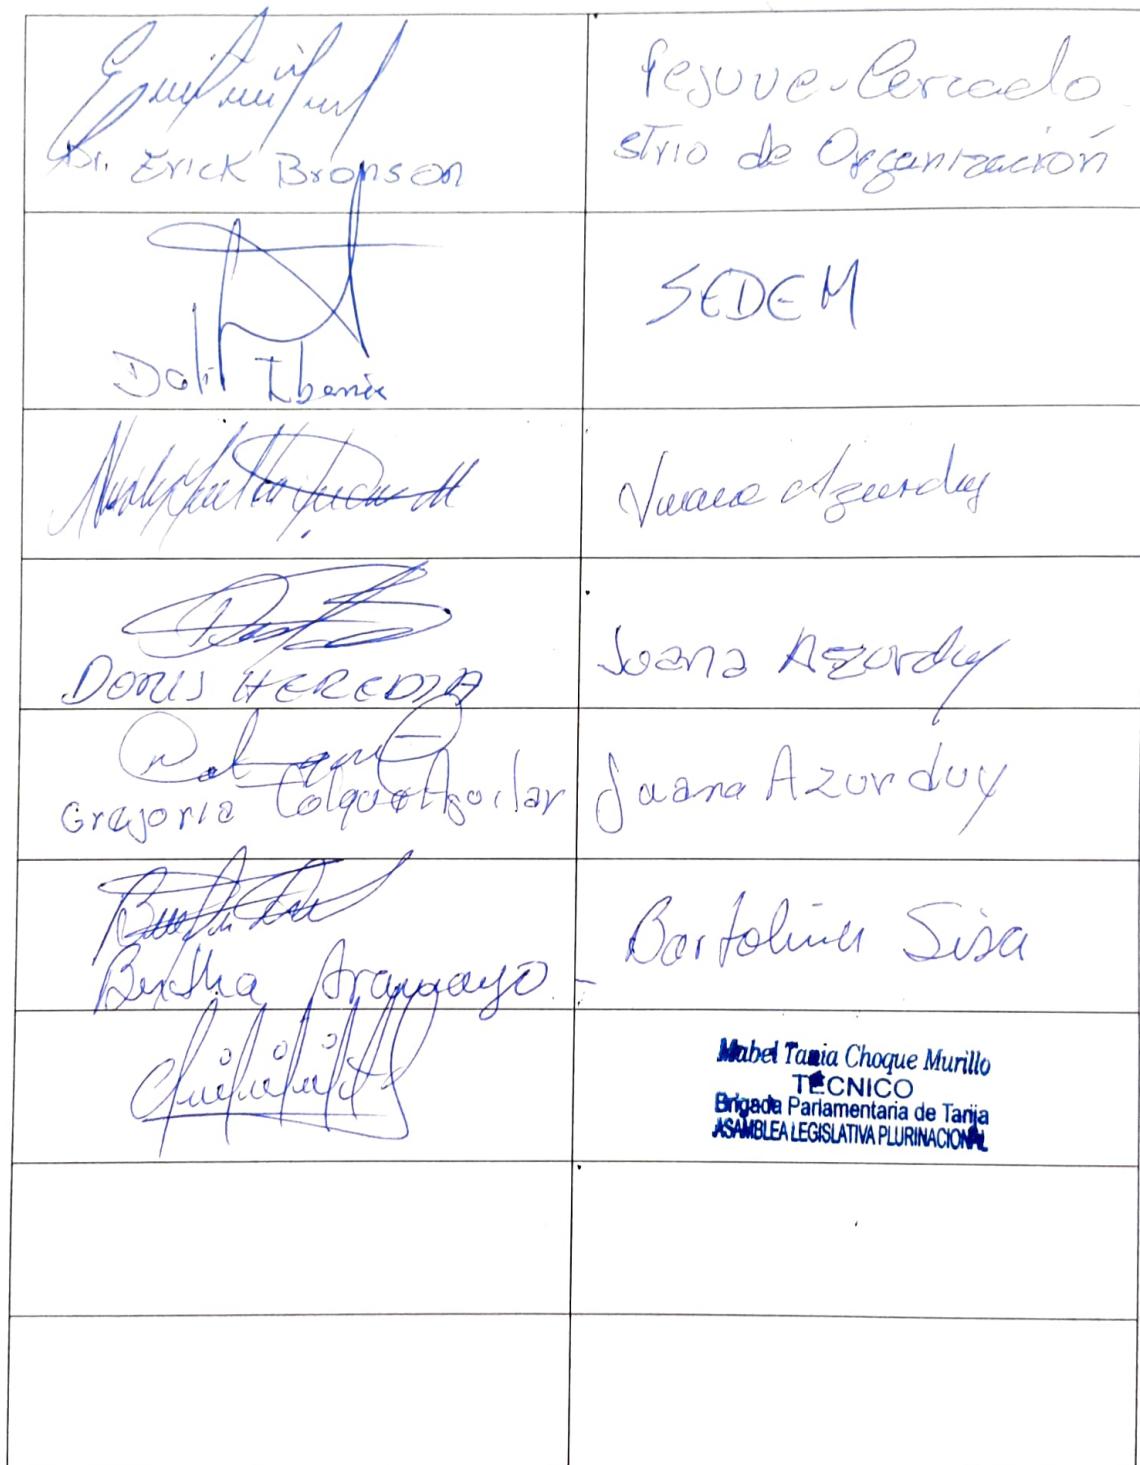 Dr. Erick Bronson
Fejuve-Cercado
Strio de Organización
SEDEM
Juana Azurduy
DORIS HEREDIA
Juana Azurduy
Gregoria Colque Aguilar
Juana Azurduy
Bertha Aramayo
Bartolina Sisa
Mabel Tania Choque Murillo
TÉCNICO
Brigada Parlamentaria de Tarija
ASAMBLEA LEGISLATIVA PLURINACIONAL